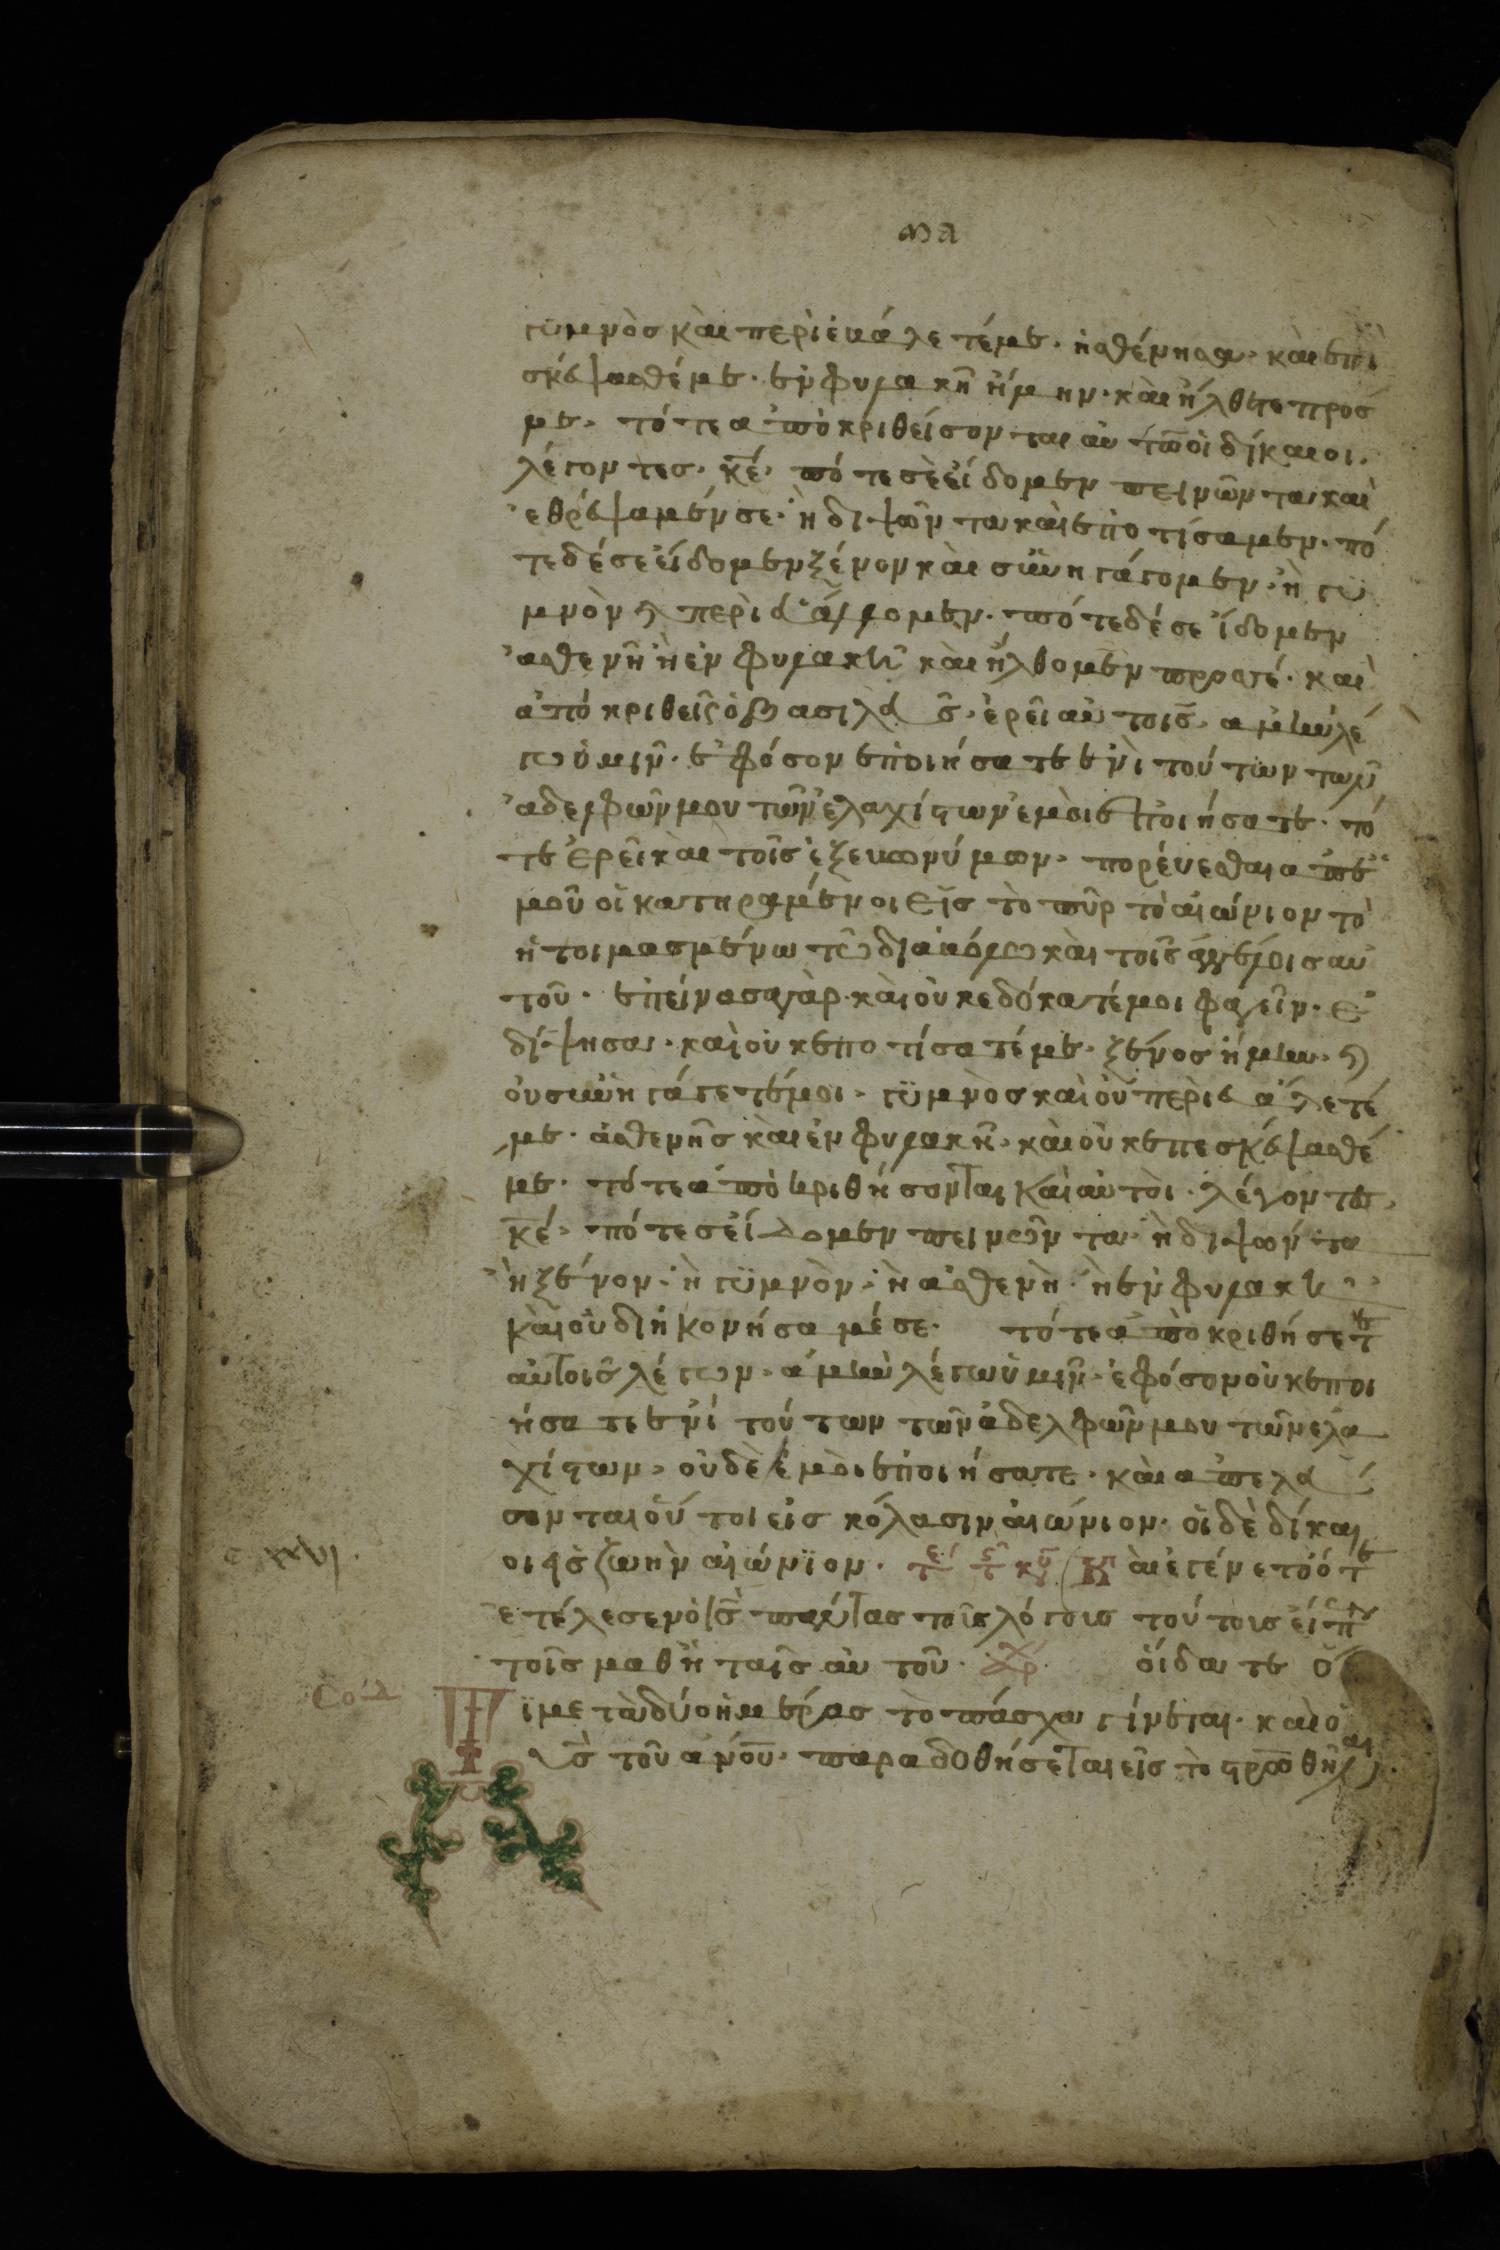 μα
γϋμνὸσ κὰι περὶεκάλετέμε· ἠσθένησα· κὰι ἐπι
σκέψασθέμε· ἐν φυλακῆ ἤμην· κὰι ἤλθετε προσ
με· τότε ἀπὸκριθείσονται αὐτῶ οἱ δίκαιοι·
λέγοντεσ· κ̅ε̅· πότε σὲ εἴδομεν πεινῶντα καὶ
ἐθρέψαμέν σε· ἢ διψῶντα κὰι ἐπὸτίσαμεν· πό
τε δέ σε εἴδομεν ξένον κὰι σϋνηγάγομεν· ἢ γϋ
μνὸν ϗ περὶεβάλομεν· πότε δέ σε ἴδομεν
ἀσθενῆ ἢ ἐν φυλακῆ κὰι ἤλθομὲν προσσέ· καὶ
ἀπόκριθεὶς ὁ βασιλεῦσ· ἐρεῖ αὐτοῖσ· ἀμὴν λέ
γω ὑμῖν· ἐφόσον ἐποιήσατε ἑνὶ τούτων τῶν
ἀδελφῶν μου τῶν ἐλαχίστων ἐμὸι ἐποιήσατε· τό
τε ἐρεῖ κὰι τοῖσ ἐξευωνύμων· πορέυεσθαι ἀπε
μοῦ οἱ κατηραμένοι εἰσ τὸ πῦρ τὸ αἰώνιον τὸ
ἡτοιμασμένω τῶ διαβόλω κὰι τοῖσ ἀγγέλοισ αὐ
τοῦ· ἐπείνασα γὰρ κὰι οὐκεδόκατέ μοι φαγεῖν· ἐ
δίψησα· καὶ οὐκεποτίσατέ με· ξένοσ ἤμην· ϗ
οὐσϋνηγάγετέ μοι· γϋμνὸσ καὶ οὐ περὶεβάλετέ
με· ἀσθενῆσ κὰι ἐν φυλακῆ· κὰι οὐκ ἐπεσκέψασθέ
με· τότε ἀπὸκριθήσονται καὶ αὐτὸι· λέγοντες·
κ̅ε̅· πότε σεἴδομεν πεινῶντα· ἢ διψῶντα
ἢ ξένον· ἢ γϋμνὸν· ἢ ἀσθενὴ· ἢ ἐν φυλακῆ
κὰι οὐ διηκονήσαμέ σε· τότε ἀποκριθήσετ
αὐτοῖσ λέγων· ἀμὴν λέγω ὑμῖν· ἐφόσον οὐκ ἐποι
ήσατε ἑνί τούτων τῶν ἀδελφῶν μου τῶν ελα
χίστων· οὐδὲ ἐμὸι ἐποιήσατε· κὰι ἀπελεύ
σονται οὗτοι εἰσ κόλασιν αἰώνιον· οἱ δὲ δίκαι
οι εἰσ ζωὴν αἰώνϊον· Κὰι ἐγένετο ὅτε
c xxvj.
ἐτέλεσεν ὁ ι̅σ̅ πάντασ τοὺσ λόγουσ τούτουσ εἶπεν
τοῖσ μαθηταῖσ αὐτοῦ· οἴδατε ὅ
Πϊ μετὰ δύο ἡμέρασ τὸ πάσχα γίνεται· κὰι ὁ
υ̅σ̅ τοῦ α̅ν̅ο̅υ̅· παραδοθήσεται εἰσ τὸ στρ̅ω̅θῆναι·